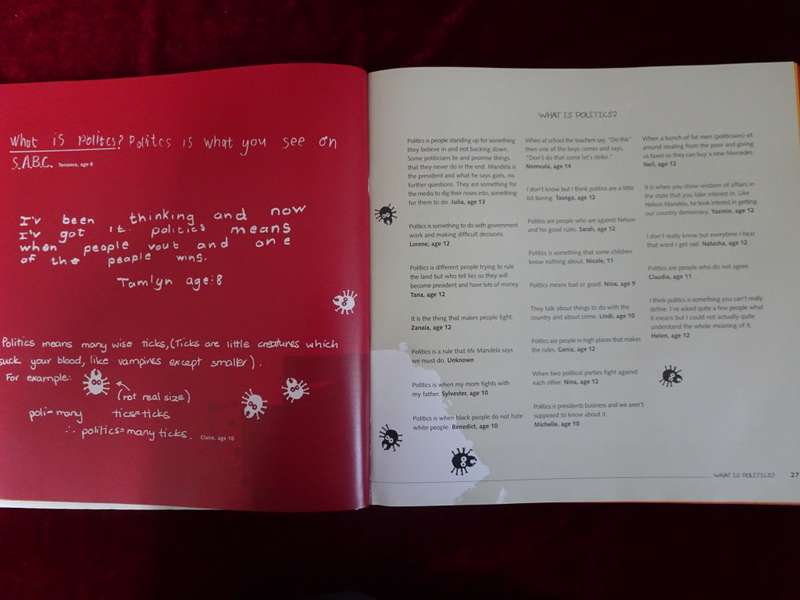 What is politics? Politics is what you see on
S.A.B.C. Terence, age 8
I'v been thinking and now
I'v got it. politics means
when people vout and one
of the people wins.
Tamlyn age:8
Politics means many wise ticks, (Ticks are little creatures which
suck your blood, like vampires except smaller).
For example:
(not real size)
poli=many tics=ticks
∴ politics=many ticks. Claire, age 10
WHAT IS POLITICS?
Politics is people standing up for something
they believe in and not backing down.
Some politicians lie and promise things
that they never do in the end. Mandela is
the president and what he says goes, no
further questions. They are something for
the media to dig their noses into, something
for them to do. Julia, age 13
Politics is something to do with government
work and making difficult decisions.
Lorene, age 12
Politics is different people trying to rule
the land but who tell lies so they will
become president and have lots of money.
Tana, age 12
It is the thing that makes people fight.
Zanaia, age 12
Politics is a rule that Mr Mandela says
we must do. Unknown
Politics is when my mom fights with
my father. Sylvester, age 10
Politics is when black people do not hate
white people. Benedict, age 10
When at school the teachers say, "Do this"
then one of the boys comes and says,
"Don't do that come let's strike."
Nomvula, age 14
I don't know but I think politics are a little
bit boring. Taonga, age 12
Politics are people who are against Nelson
and his good rules. Sarah, age 12
Politics is something that some children
know nothing about. Nicole, 11
Politics means bad or good. Nina, age 9
They talk about things to do with the
country and about crime. Lindi, age 10
Politics are people in high places that makes
the rules. Genia, age 12
When two political parties fight against
each other. Nina, age 12
Politics is presidents business and we aren't
supposed to know about it.
Michelle, age 10
When a bunch of fat men (politicians) sit
around stealing from the poor and giving
us taxes so they can buy a new Mercedes.
Neil, age 12
It is when you show wisdom of affairs in
the state that you take interest in. Like
Nelson Mandela, he took interest in getting
our country democracy. Yasmin, age 12
I don't really know but everytime I hear
that word I get sad. Natasha, age 12
Politics are people who do not agree.
Claudia, age 11
I think politics is something you can't really
define. I've asked quite a few people what
it means but I could not actually quite
understand the whole meaning of it.
Helen, age 12
WHAT IS POLITICS? 27